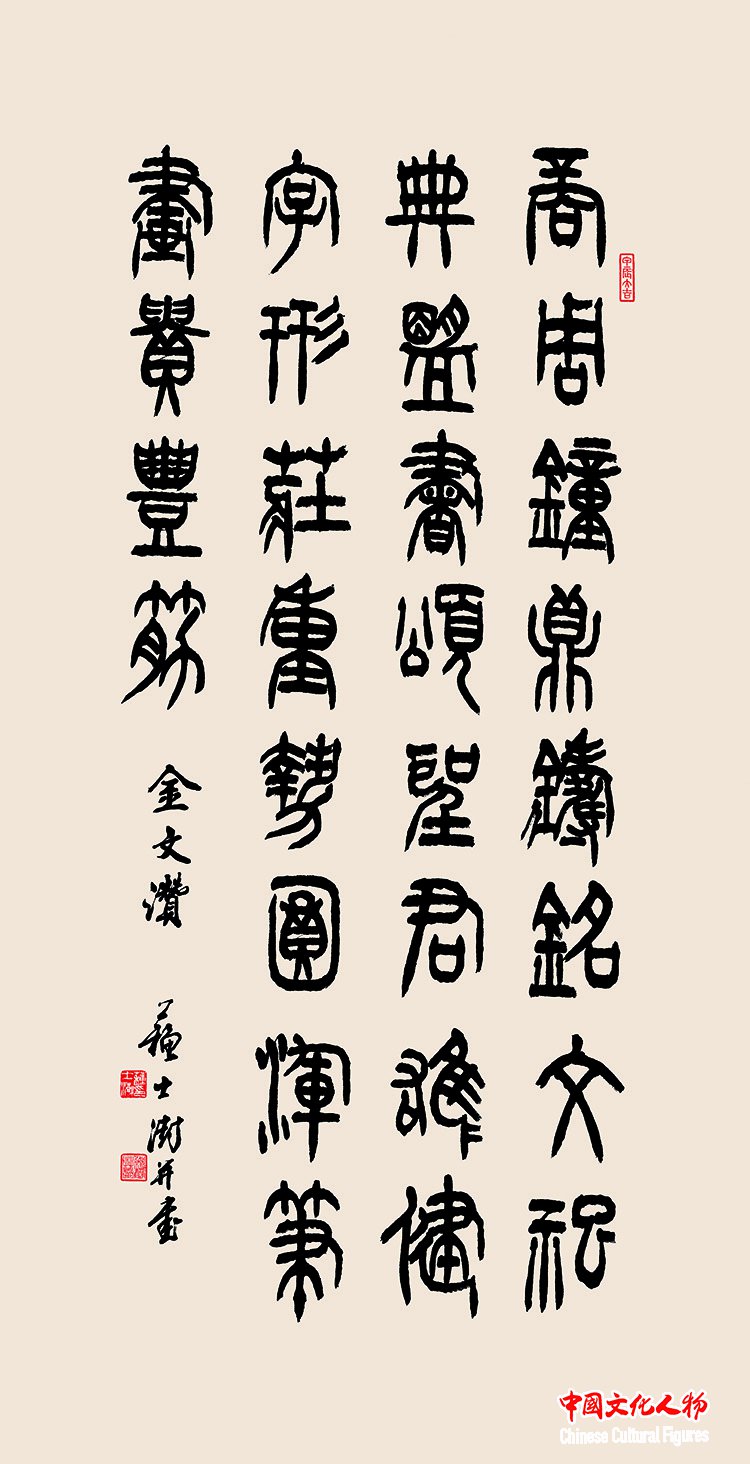 商周鐘鼎鑄銘文祀
典盟書頌聖君雄健
字形莊重勢圓渾筆
畫貴豐筋 金文讚 蘇士澍并書
中國文化人物
Chinese Cultural Figures